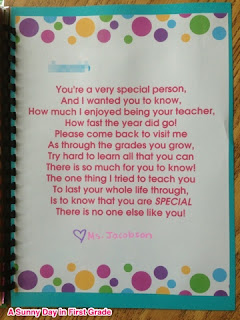 You're a very special person,
And I wanted you to know,
How much I enjoyed being your teacher,
How fast the year did go!
Please come back to visit me
As through the grades you grow,
Try hard to learn all that you can
There is so much for you to know!
The one thing I tried to teach you
To last your whole life through,
Is to know that you are SPECIAL
There is no one else like you!
Ms. Jacobson
A Sunny Day in First Grade